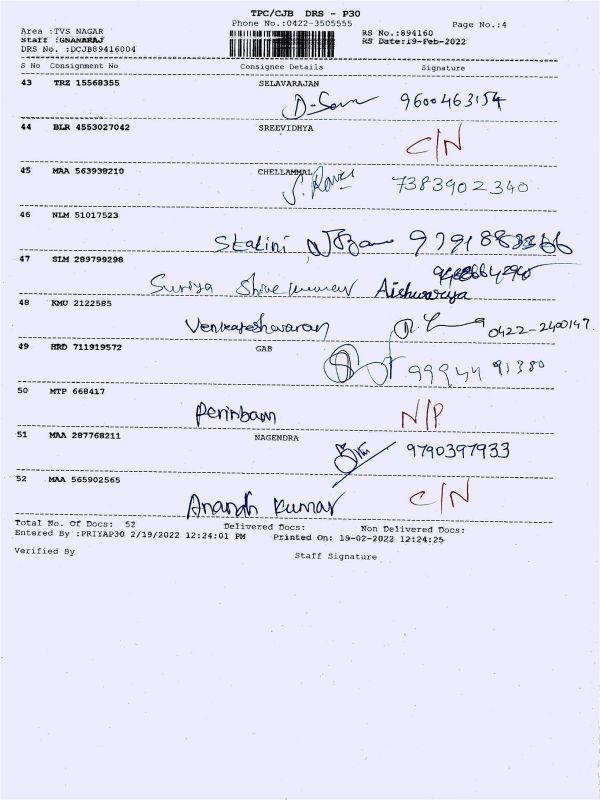 TPC/CJB DRS - P30
Phone No.:0422-3505555 Page No.:4
Area :TVS NAGAR RS No.:894160
Staff :GNANARAJ RS Date:19-Feb-2022
DRS No. :DCJB89416004
S No Consignment No Consignee Details Signature
43 TRZ 15568355 SELAVARAJAN
9600463154
44 BLR 4553027042 SREEVIDHYA
C/N
45 MAA 563938210 CHELLAMMAL
S. Ravi 7383902340
46 NLM 51017523
Stalini
47 SLM 289799298
Suriya Aishwariya
48 KMU 2122585
Venkateshwaran 0422-2400147.
49 HRD 711919572 GAB
99944 91380
50 MTP 668417
Perinbam N/P
51 MAA 287768211 NAGENDRA
9790397933
52 MAA 565902565
Anandh Kumar C/N
Total No. Of Docs: 52 Delivered Docs: Non Delivered Docs:
Entered By :PRIYAP30 2/19/2022 12:24:01 PM Printed On: 19-02-2022 12:24:25
Verified By Staff Signature